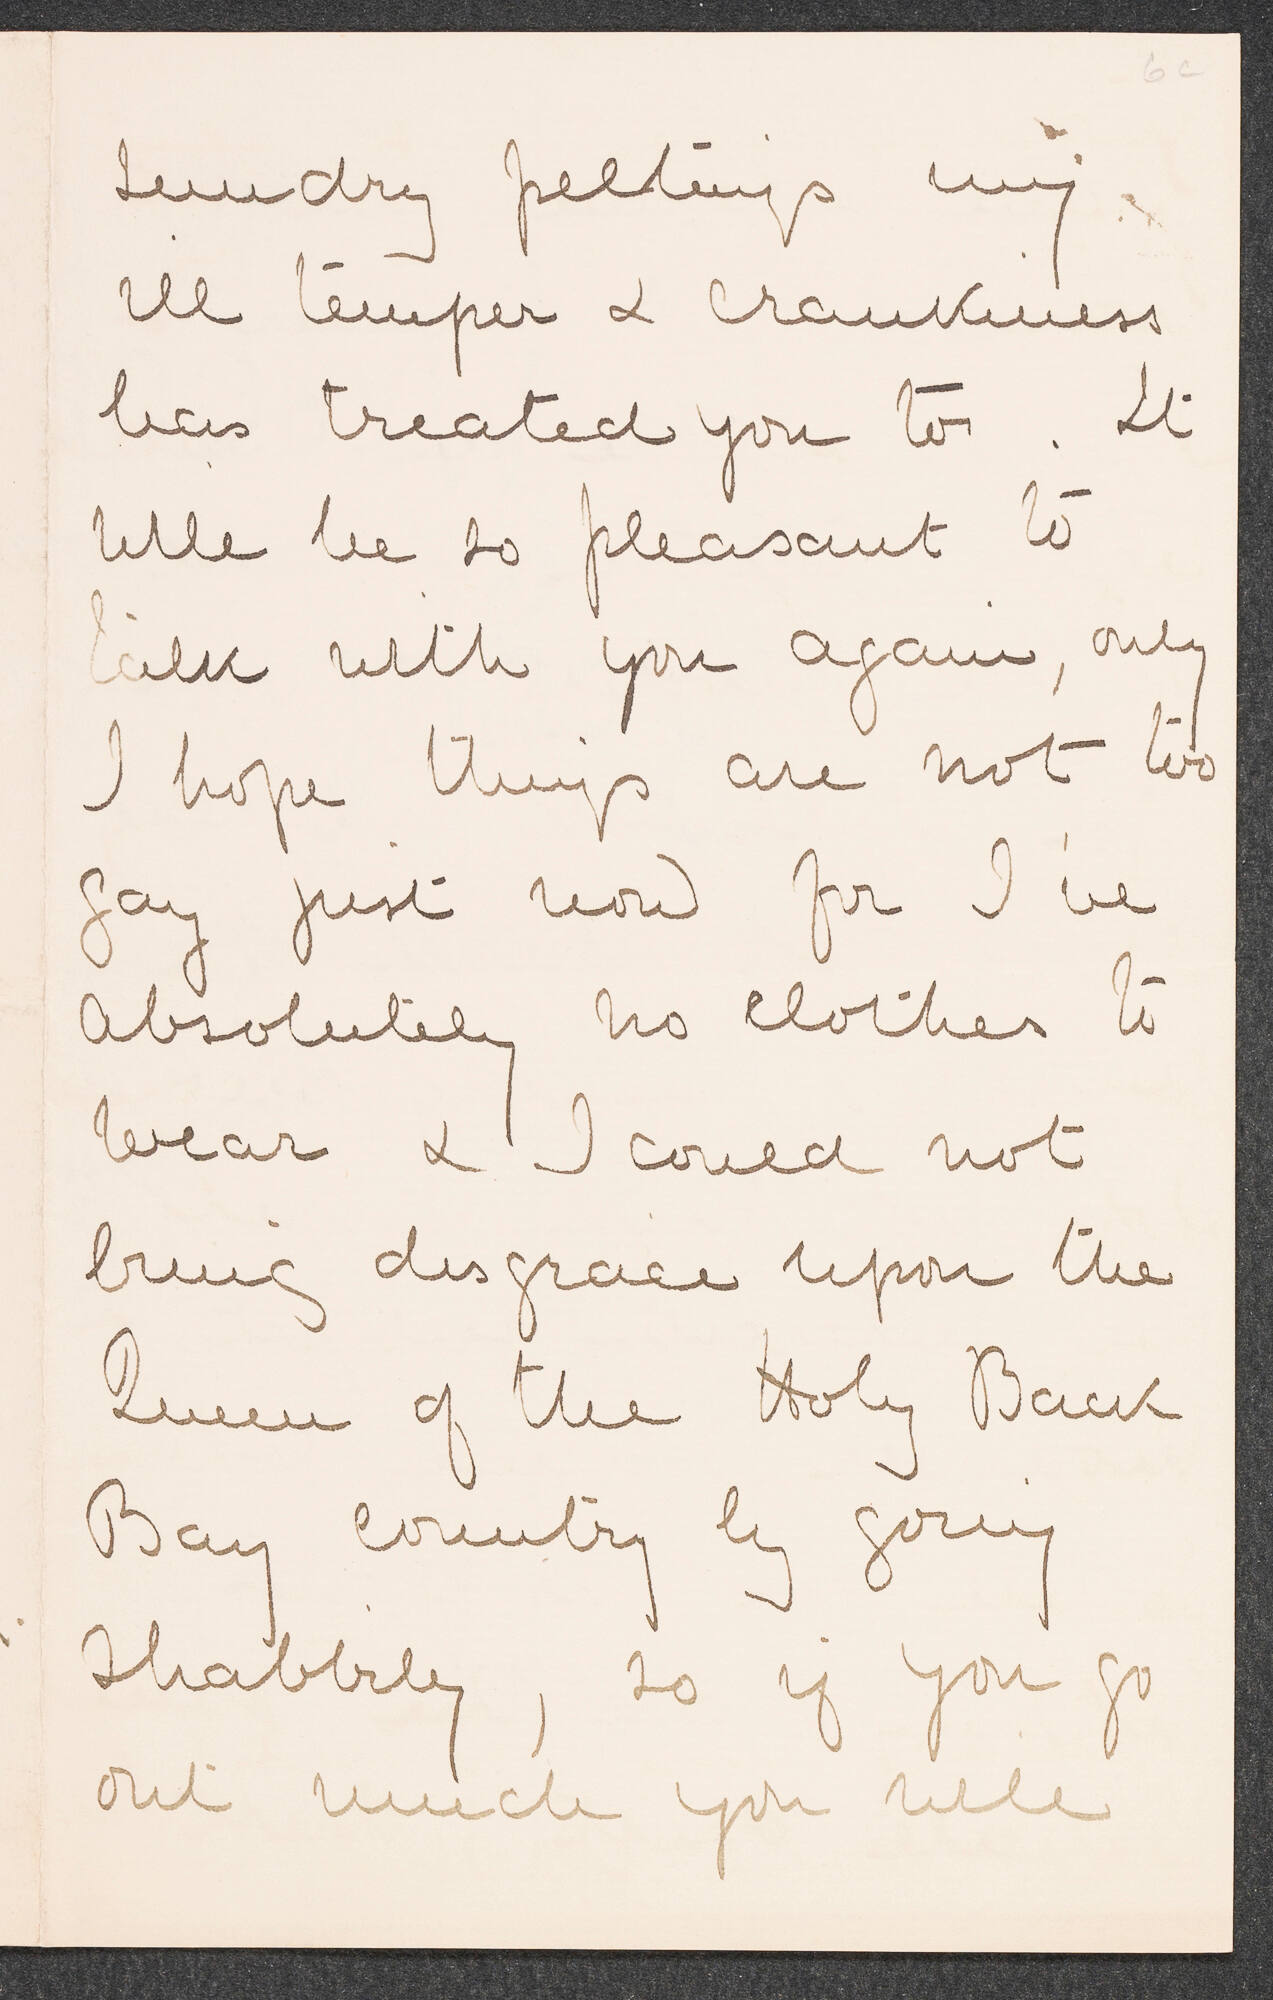 6c
sundry peltings my
ill temper & crankiness
has treated you to. It
will be so pleasant to
talk with you again, only
I hope things are not too
gay just now for I've
absolutely no clothes to
wear & I could not
bring disgrace upon the
Queen of the Holy Back
Bay country by going
shabbily, so if you go
out much you will